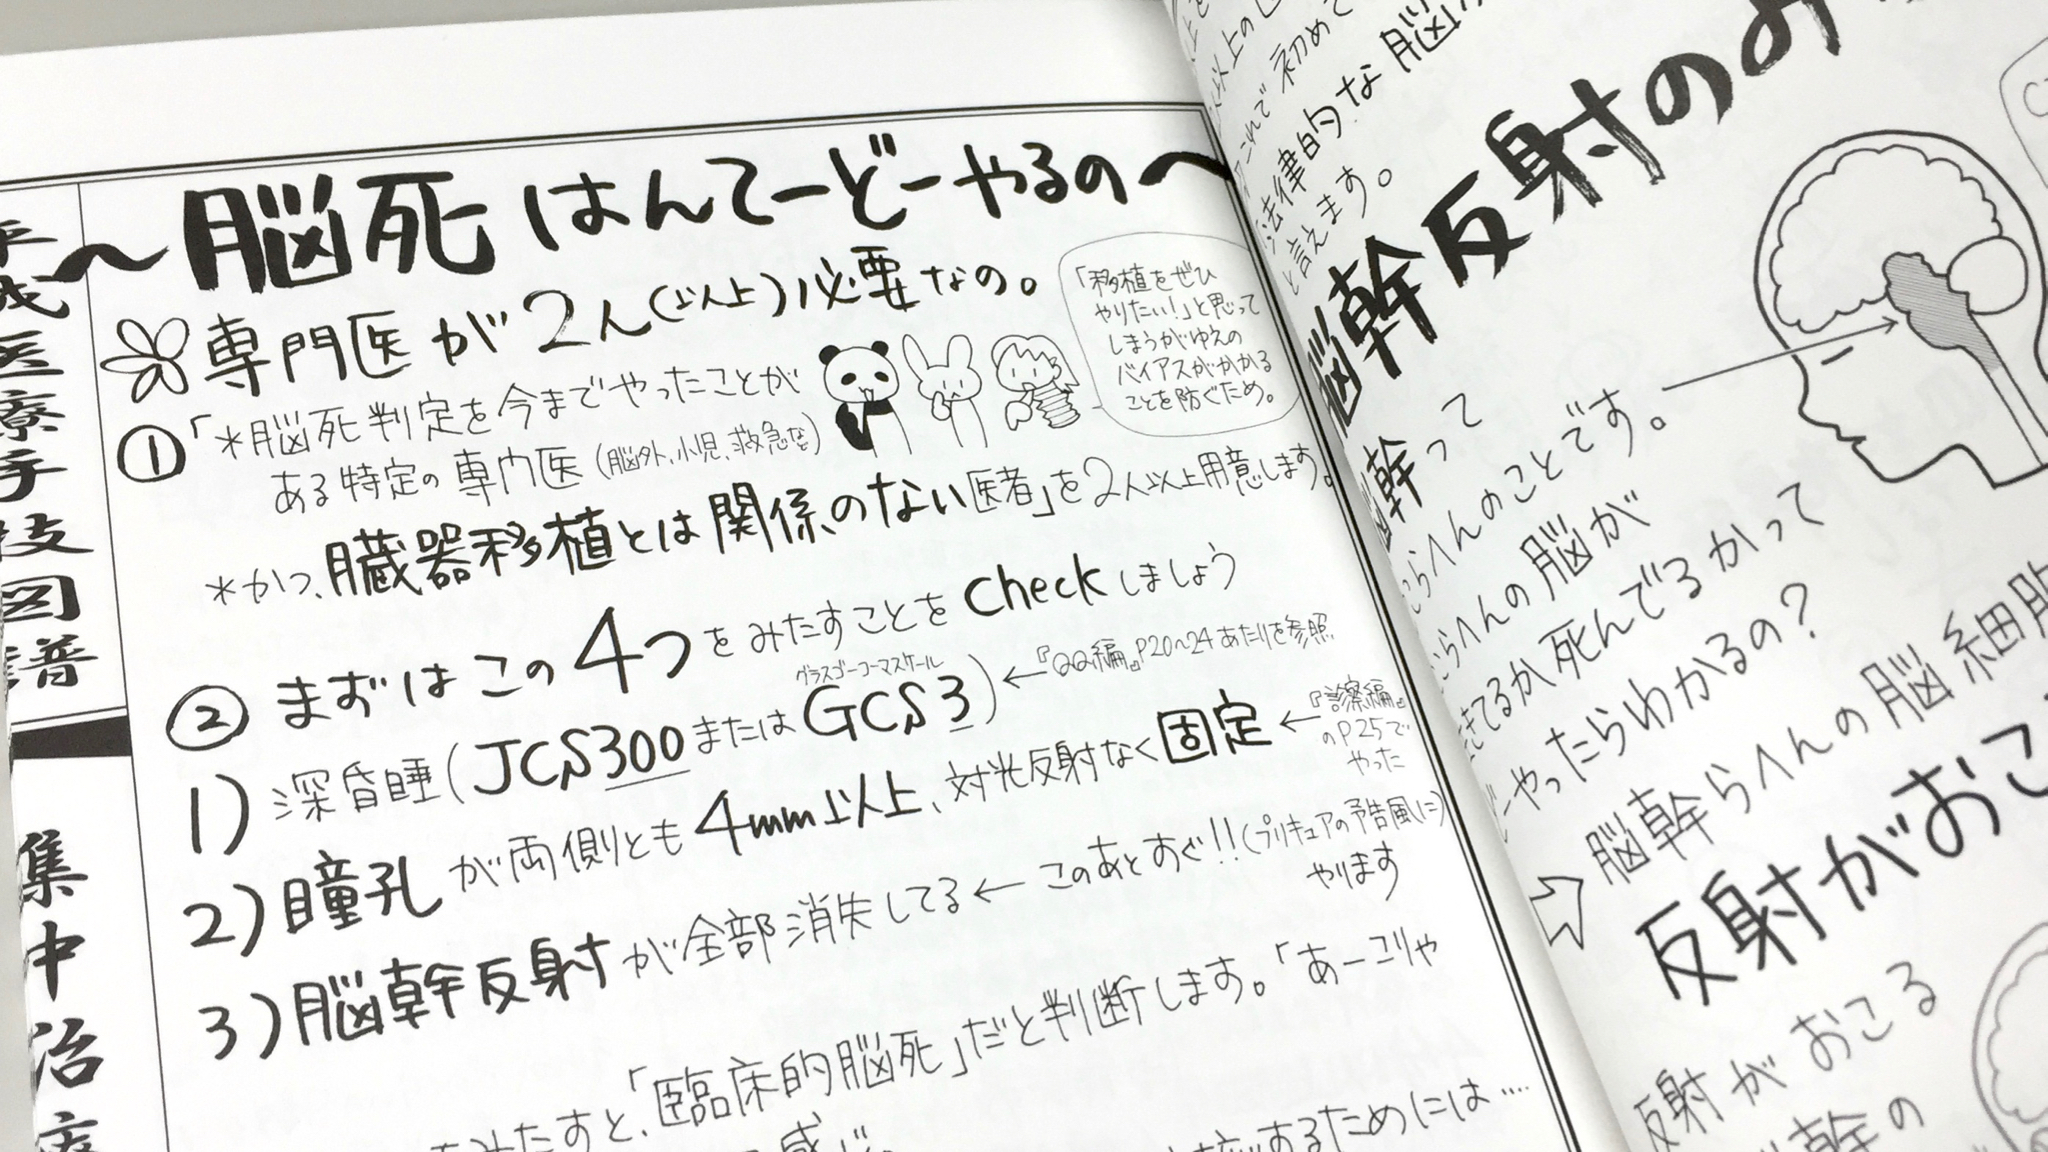 医療手技図譜
集中治
〜脳死はんてーどーやるの〜
専門医が2人(以上)必要なの。
「移植をぜひ
やりたい!」と思って
しまうがゆえの
バイアスがかかる
ことを防ぐため。
①「*脳死判定を今までやったことが
ある特定の専門医(脳外、小児、救急など)
*かつ、臓器移植とは関係のない医者」を2人以上用意します。
②まずはこの4つをみたすことをcheckしましょう
グラスゴーコーマスケール
1)深昏睡(JCS300またはGCS3)←『QQ編』P20〜24あたりを参照
2)瞳孔が両側とも4mm以上、対光反射なく固定←『診察編』
のP25で
やった
3)脳幹反射が全部消失してる←このあとすぐ!!(プリキュアの予告風に)
やります
みたすと、「臨床的脳死」だと判断します。「あーこりゃ
感じ
するためには……
以上の
これで初めて
法律的な脳
と言えます。
脳幹反射のみ
幹って
らへんのことです。
らへんの脳が
きてるか死んでるかって
どーやったらわかるの?
⇨脳幹らへんの脳細胞
反射がおこ
反射がおこる
幹の